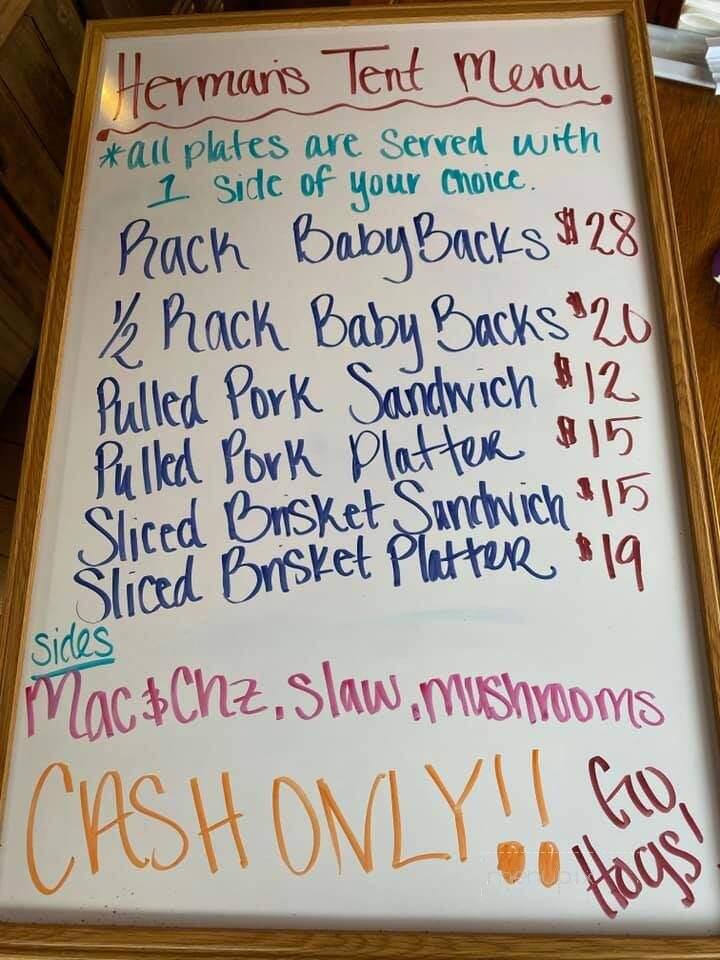 Herman's Tent Menu
*all plates are served with
1 side of your choice.
Rack BabyBacks $28
1/2 Rack Baby Backs $20
Pulled Pork Sandwich $12
Pulled Pork Platter $15
Sliced Brisket Sandwich $15
Sliced Brisket Platter $19
Sides
Mac & Chz, slaw, mushrooms
CASH ONLY!!
Go,
Hogs!